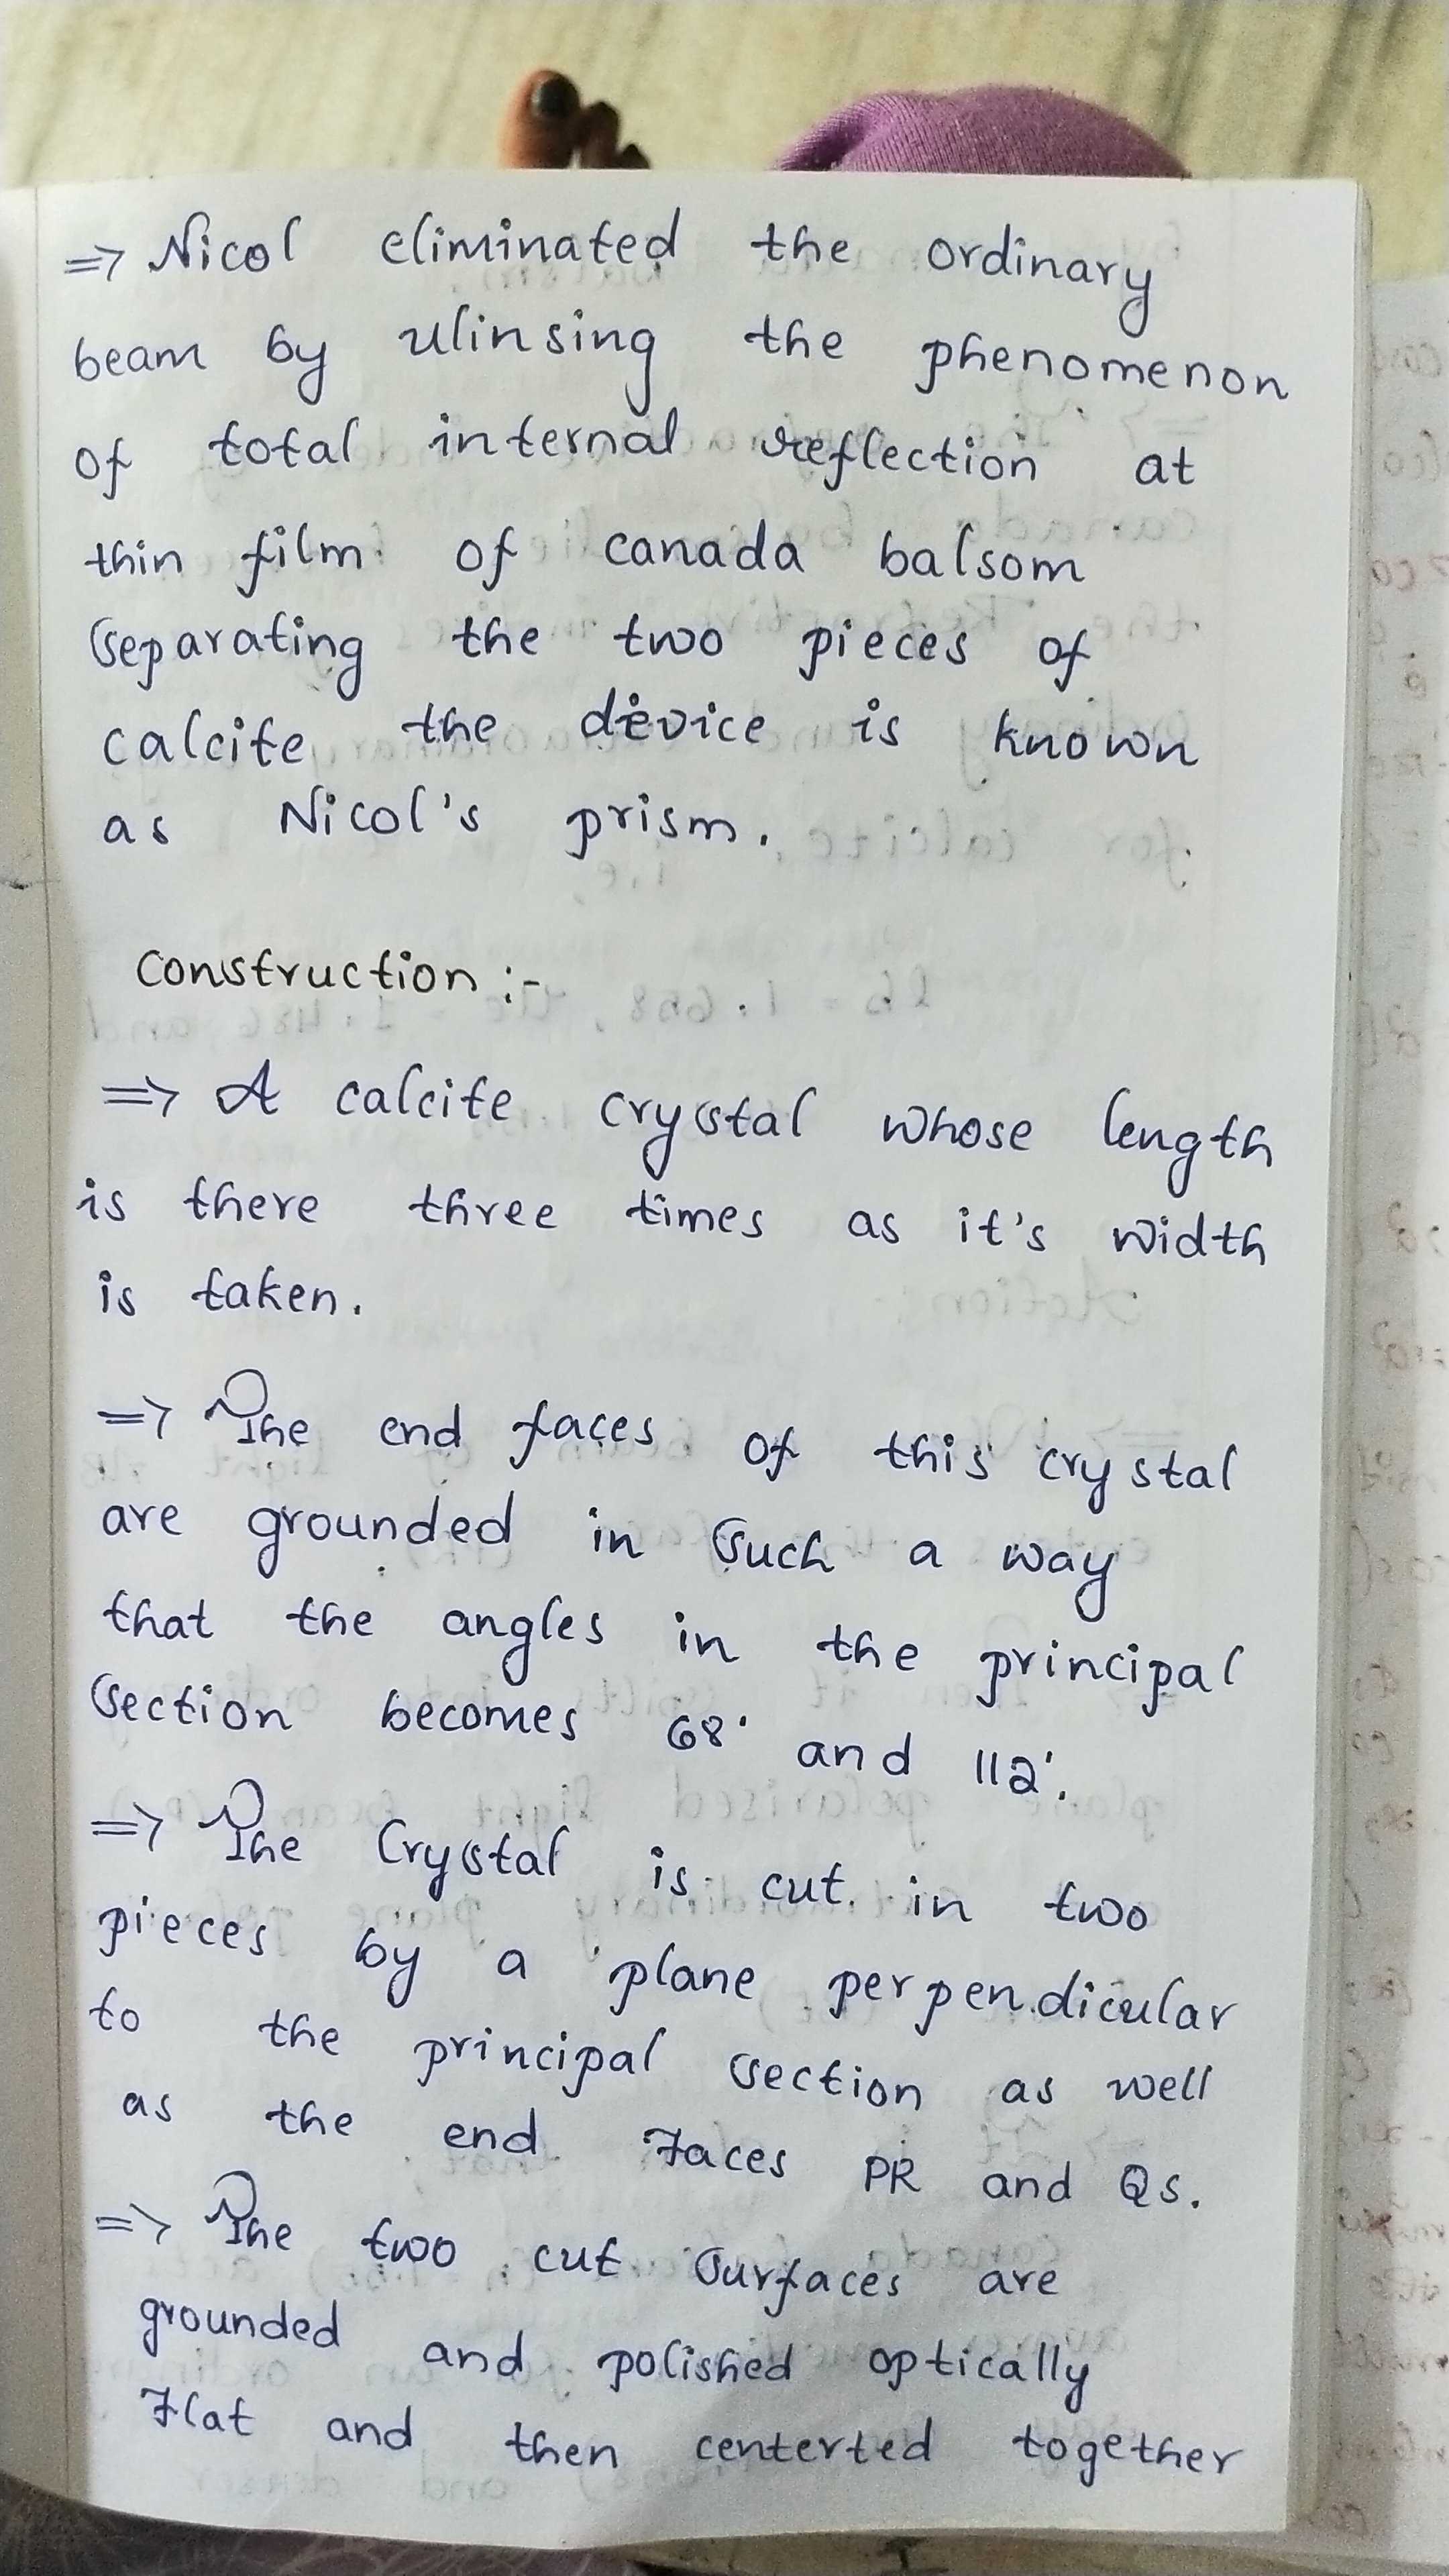 ⇒ Nicol eliminated the ordinary
beam by ulinsing the phenomenon
of total internal reflection at
thin film of canada balsom
separating the two pieces of
calcite the device is known
as Nicol's prism.
construction :-
⇒ A calcite crystal whose length
is there three times as it's width
is taken.
⇒ The end faces of this crystal
are grounded in such a way
that the angles in the principal
section becomes 68° and 112°.
⇒ The Crystal is cut in two
pieces by a plane perpendicular
to the principal section as well
as the end faces PR and QS.
⇒ The two cut surfaces are
grounded and polished optically
flat and then centerted together